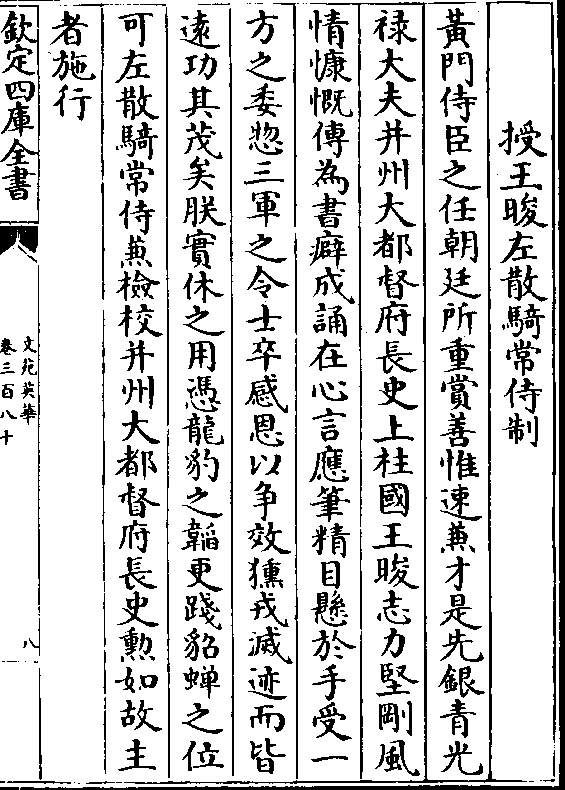 授王晙左散騎常侍制
黃門侍臣之任朝廷所重賞善惟速兼才是先銀青光
禄大夫并州大都督府長史上柱國王晙志力堅剛風
情慷慨傳為書癖成誦在心言應筆精目懸於手受一
方之委惣三軍之令士卒感恩以争效獯戎滅迹而皆
逺功其茂矣朕實休之用憑龍豹之韜更踐貂蟬之位
可左散騎常侍兼檢校并州大都督府長史勲如故主
者施行
欽定四庫全書
文苑英華
卷三百八十
八